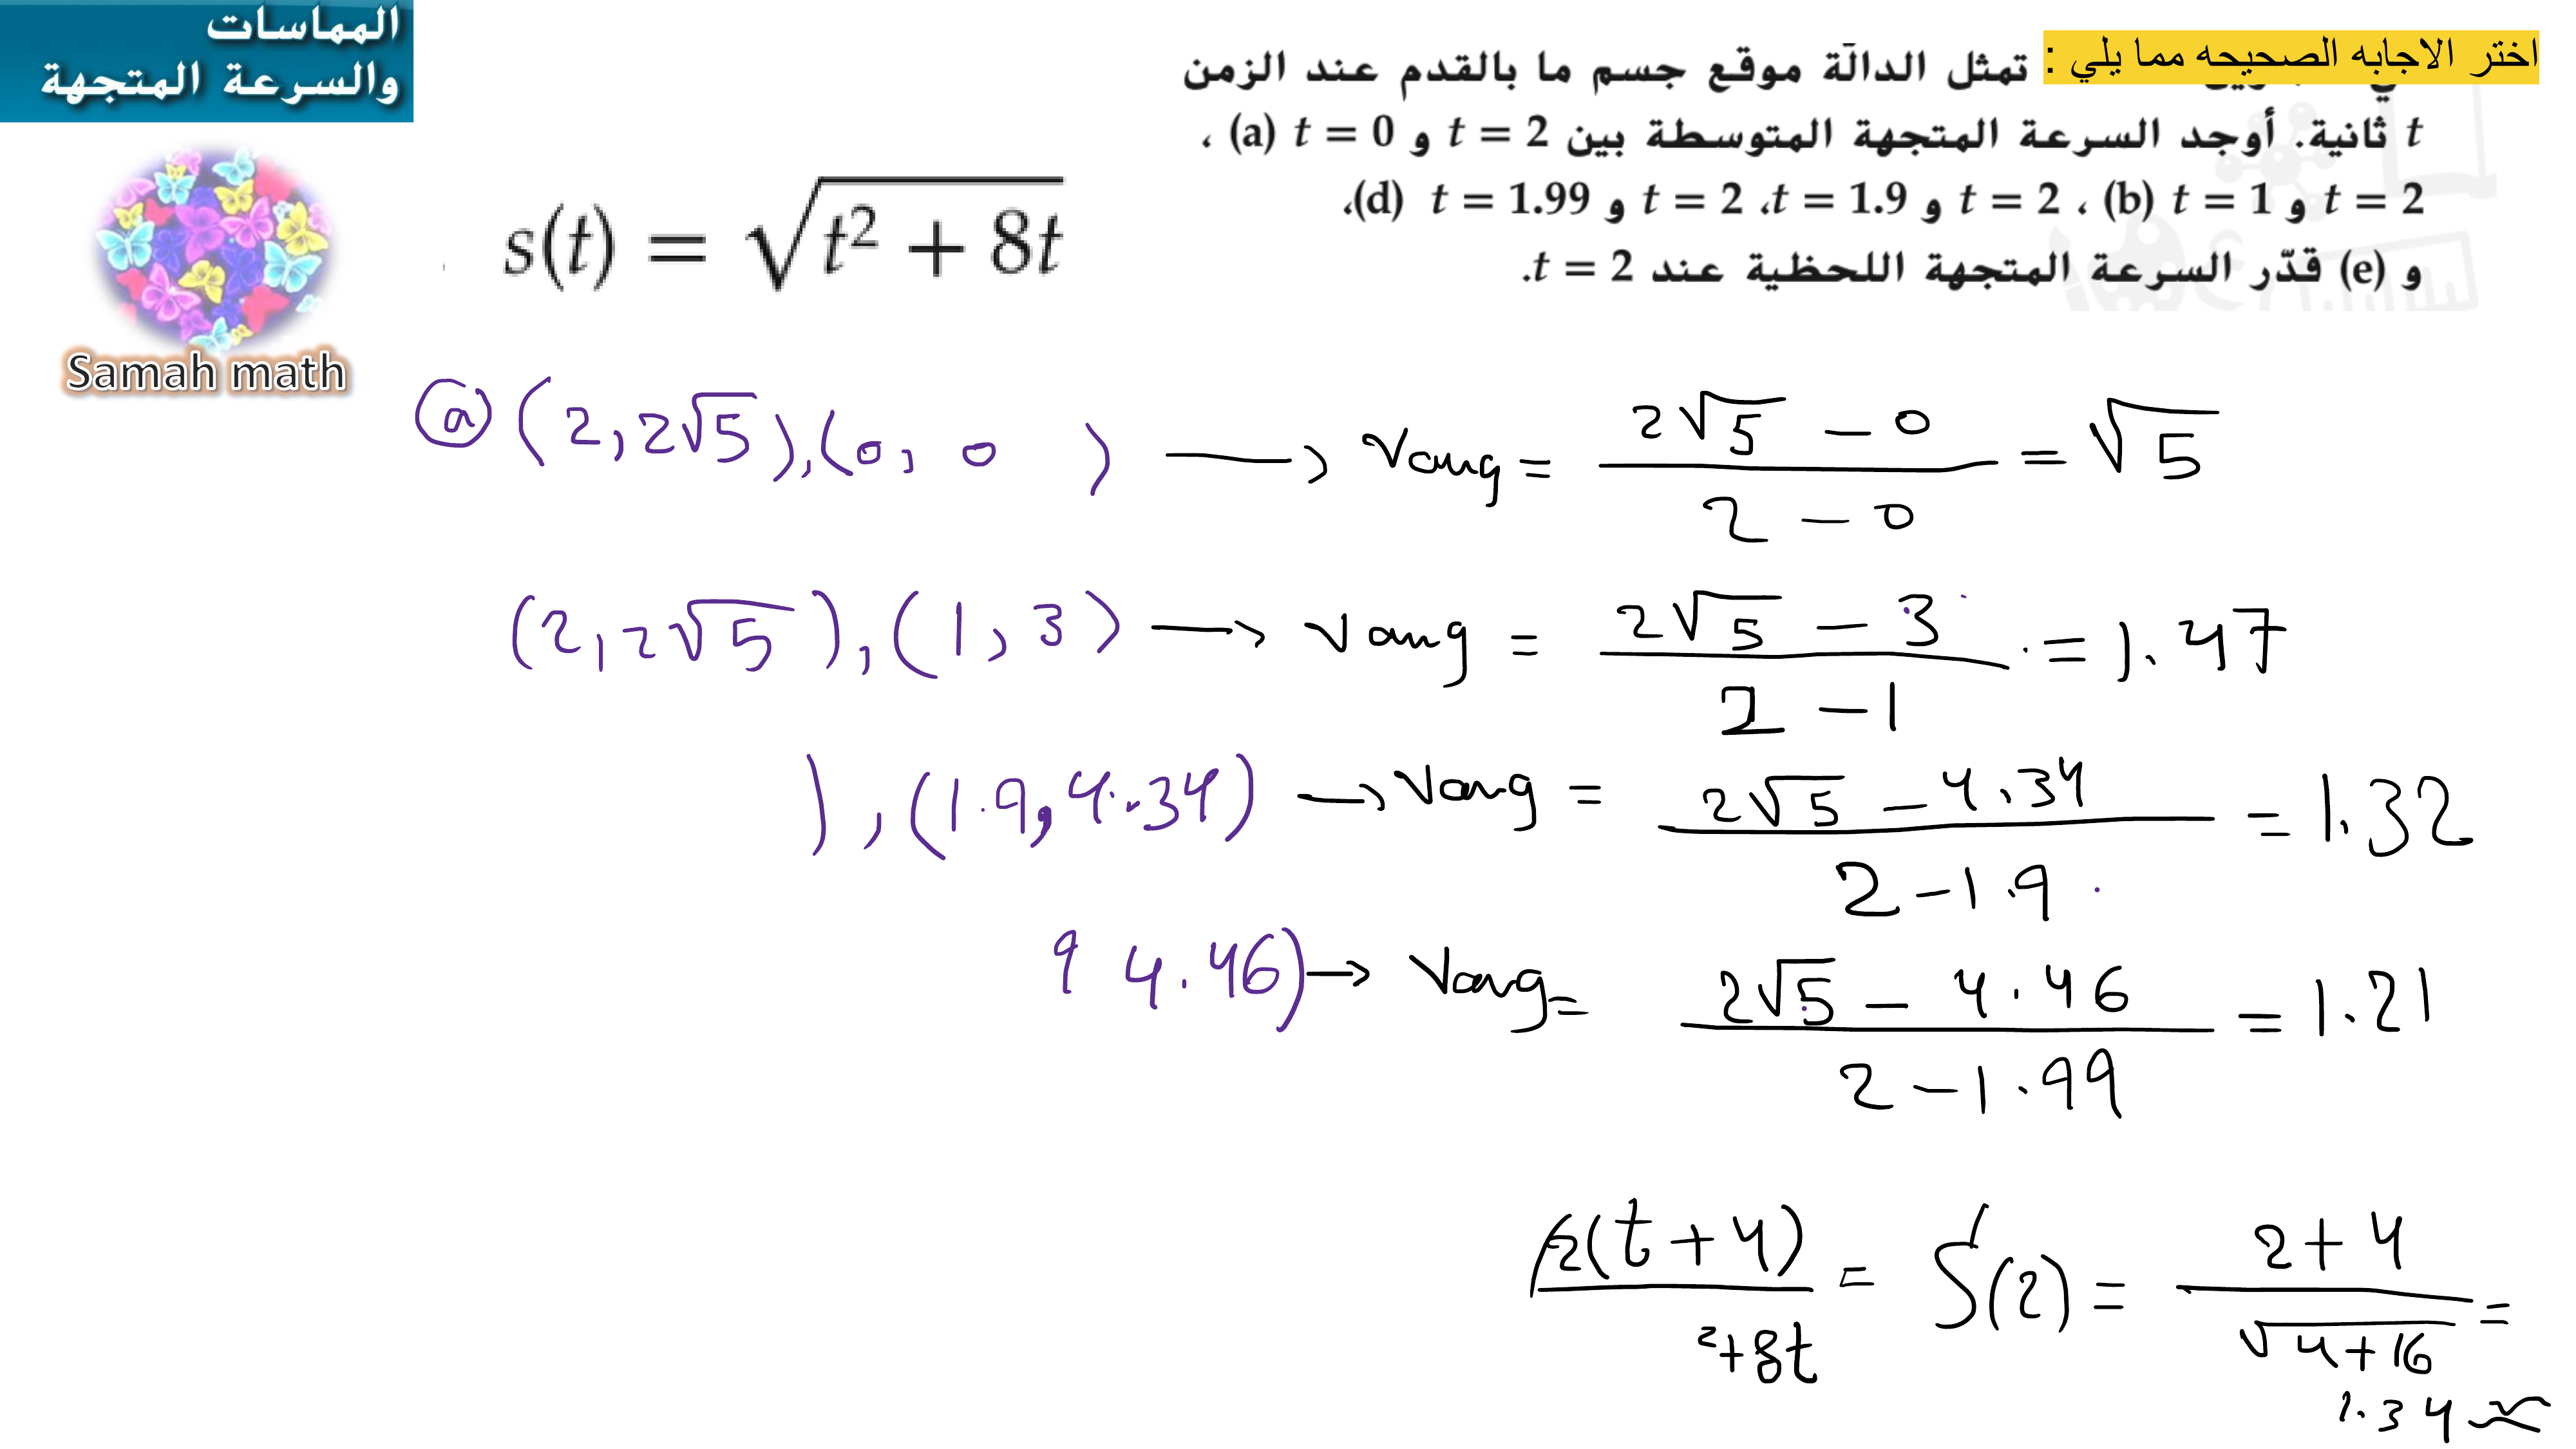 المماسات
والسرعة المتجهة
Samah math
اختر الاجابه الصحيحه مما يلي :
تمثل الدالّة موقع جسم ما بالقدم عند الزمن
t ثانية. أوجد السرعة المتجهة المتوسطة بين t = 2 و t = 0 (a) ،
t = 2 و t = 1 (b) ، t = 2 و t = 1.9، t = 2 و t = 1.99 (d)،
و (e) قدّر السرعة المتجهة اللحظية عند t = 2.
s(t) = √(t² + 8t)
ⓐ (2, 2√5), (0, 0) → Vavg = (2√5 − 0)/(2 − 0) = √5
(2, 2√5), (1, 3) → Vavg = (2√5 − 3)/(2 − 1) = 1.47
), (1.9, 4.34) → Vavg = (2√5 − 4.34)/(2 − 1.9) = 1.32
9 4.46) → Vavg = (2√5 − 4.46)/(2 − 1.99) = 1.21
2(t + 4)/ ²+8t = S′(2) = (2 + 4)/√(4+16) =
1.34 ≈